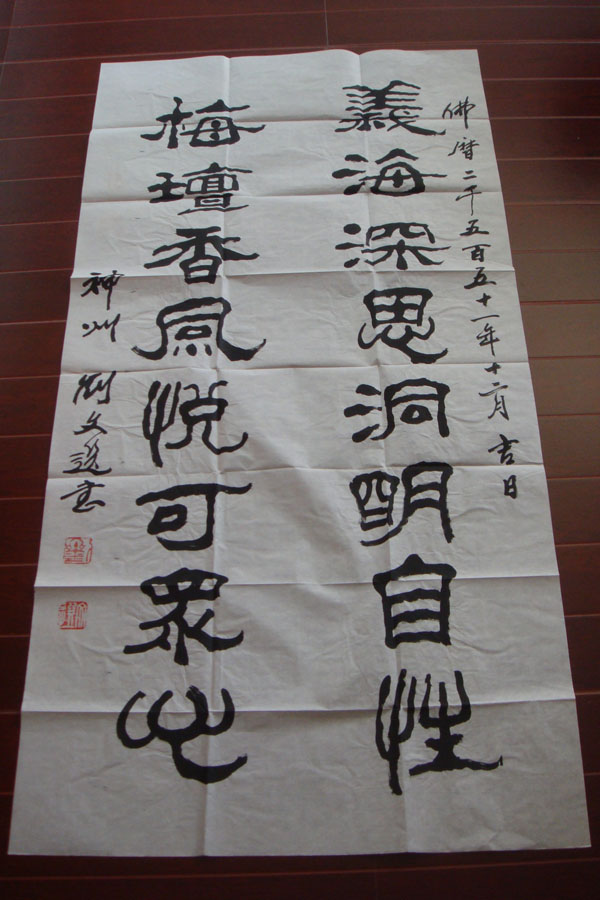 佛曆二千五百五十一年十二月吉日
義海深思洞明自性
梅壇香風悅可眾心
神州劉文選書